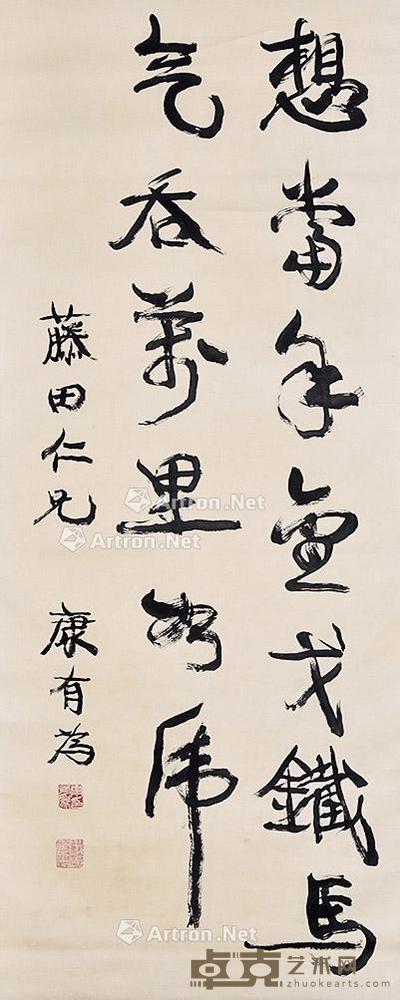 想當年金戈鐵馬
气吞萬里如虎
藤田仁兄
康有為
Artron.Net
Artron.Net
Artron.Net
Artron.Net
卓克艺术网
zhuokearts.com